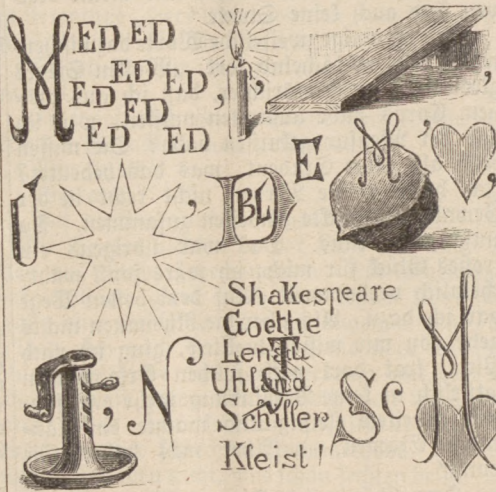 M ED ED
ED ED ,
ED
ED
ED ED
, ,
, BL E M ' ,
D
Shakespeare
Goethe
Lenau
Uhland
Schiller
Kleist!
T
, N Sc M